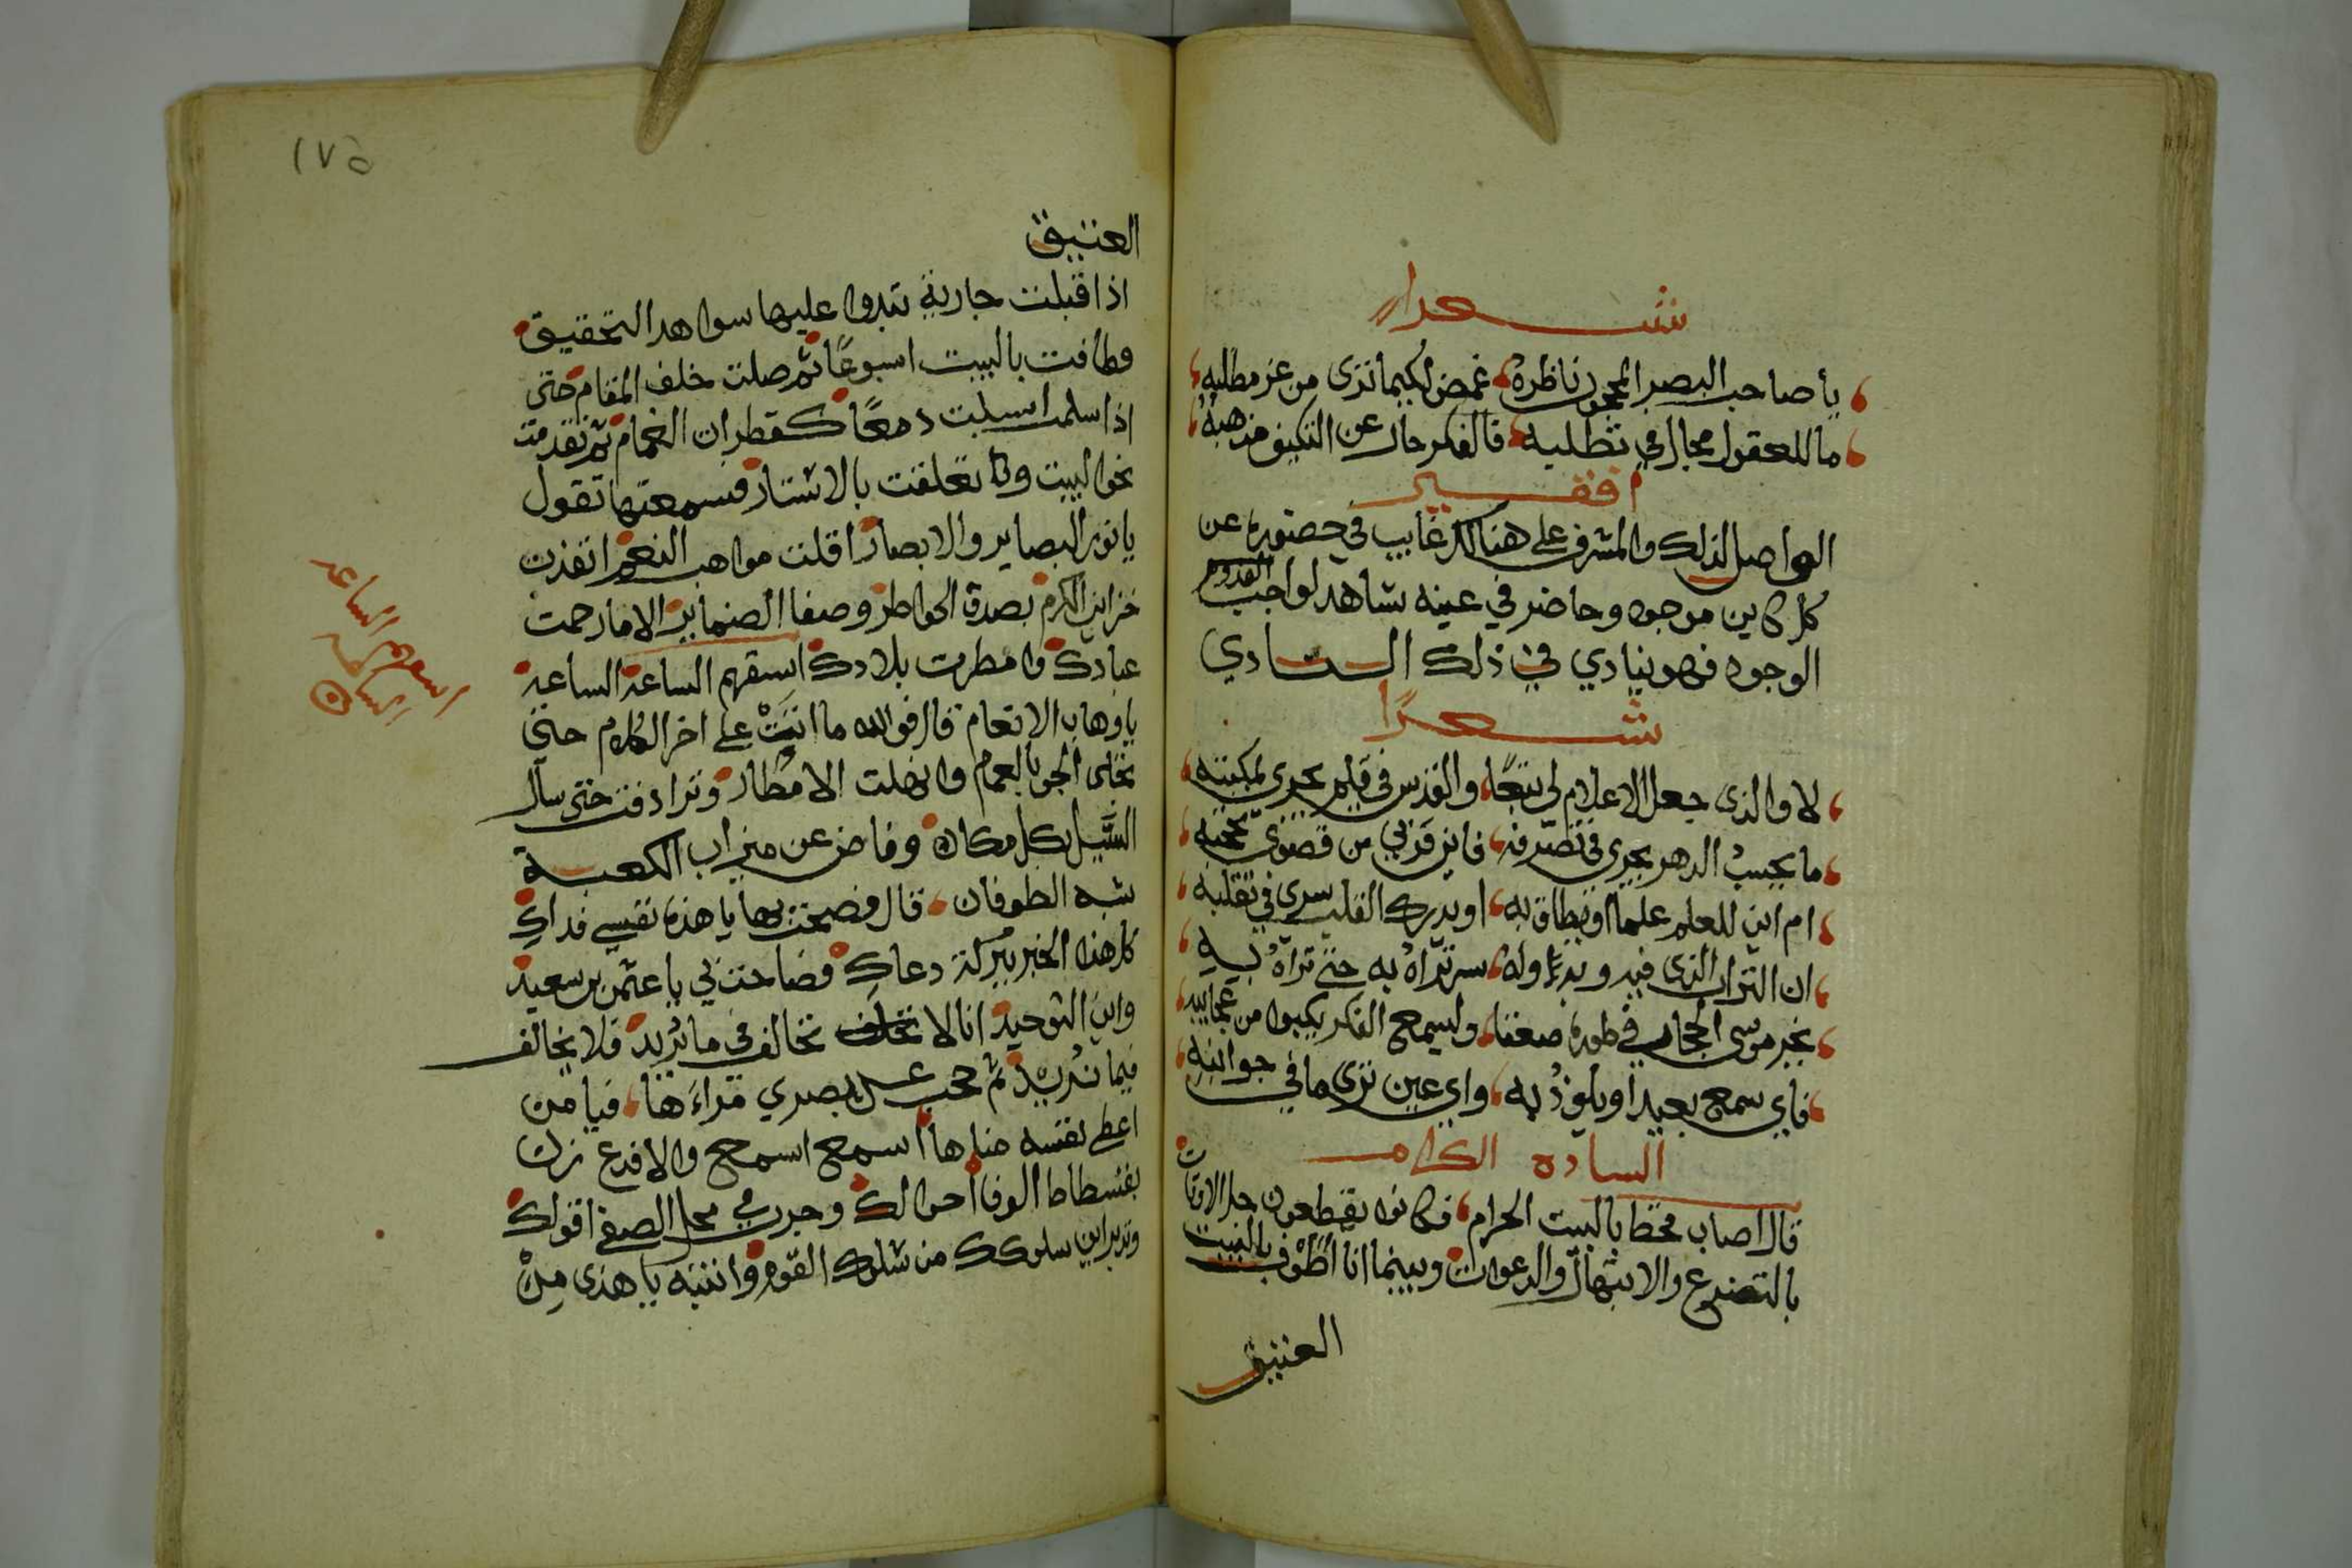 شعرا
يا صاحب البصر المحجوب ناظره غمض لكيما ترى من عز مطلبه
ما للعقول مجال في تطلبه فالفكر حال عن التكيف مذهبه
افقير
الواصل لذلك والمشرف على هنالك غايب في حضوره عن
كل كاين موجود وحاضر في عينه شاهد لواجب القدوم
الوجود فهو ينادي في ذلك النادي
شعرًا
لا والذى جعل الاعلام لي تبعًا والقدس في قلم يجرى بمكتبه
ما يحسب الدهر يجرى في تصرفه فاين قربي من قصوى تحجبه
ام اين للعلم علما او يطاق به او يدرك القلب سرى في تقلبه
ان التراب الذى فيه وبدء اوله سر تراه به حتى تراه به
يخبر موسى الحجاب في طوره صعقا وليسمع الفكر يكبوا من عجايبه
فاي سمع بعيد او يلوذ به واي عين ترى ما في جوانبه
السادة الكرام
قال اصاب قحط بالبيت الحرام فكانوا يقطعون جل الاوقات
بالتضرع والابتهال والدعوات وبينما انا اطوف بالبيت
العتيق
١٧٥
العتيق
اذ اقبلت جارية تبدوا عليها سواهد التحقيق
وطافت بالبيت اسبوعًا ثم صلت خلف المقام حتى
اذا سلمت اسبلت دمعًا كقطران الغمام ثم تقدمت
نحو البيت وتعلقت بالاستار فسمعتها تقول
يا نور البصاير والابصار اقلت مواهب النعم انفذت
خزاين الكرم بصدق الخواطر وصفا الضماير الا ما رحمت
عبادك وامطرت بلادك اسقهم الساعة الساعة
يا وهاب الانعام قال فوالله ما اتت على اخر الكلام حتى
تخلى الجو بالغمام وانهلت الامطار وترادفت حتى سال
السيل بكل مكان وفاض عن ميزاب الكعبة
شبه الطوفان قال فصحت بها يا هذه نفسي فداكِ
كل هذا الخير ببركة دعاكِ فصاحت بي يا عثمن بن سعيد
واين التوحيد انا لا نخالف في ما يريد فلا يخالف
فيما نريد ثم حجب عن بصري مراءها فيا من
اعطى نفسه مناها اسمع اسمع والا فدع زن
بقسطاط الوفا احوالك وجرب في محل الصفى اقوالك
وتدبر اين سلوكك من سلوك القوم وانتبه يا هذى من
اسقهم الساعة
الساعة